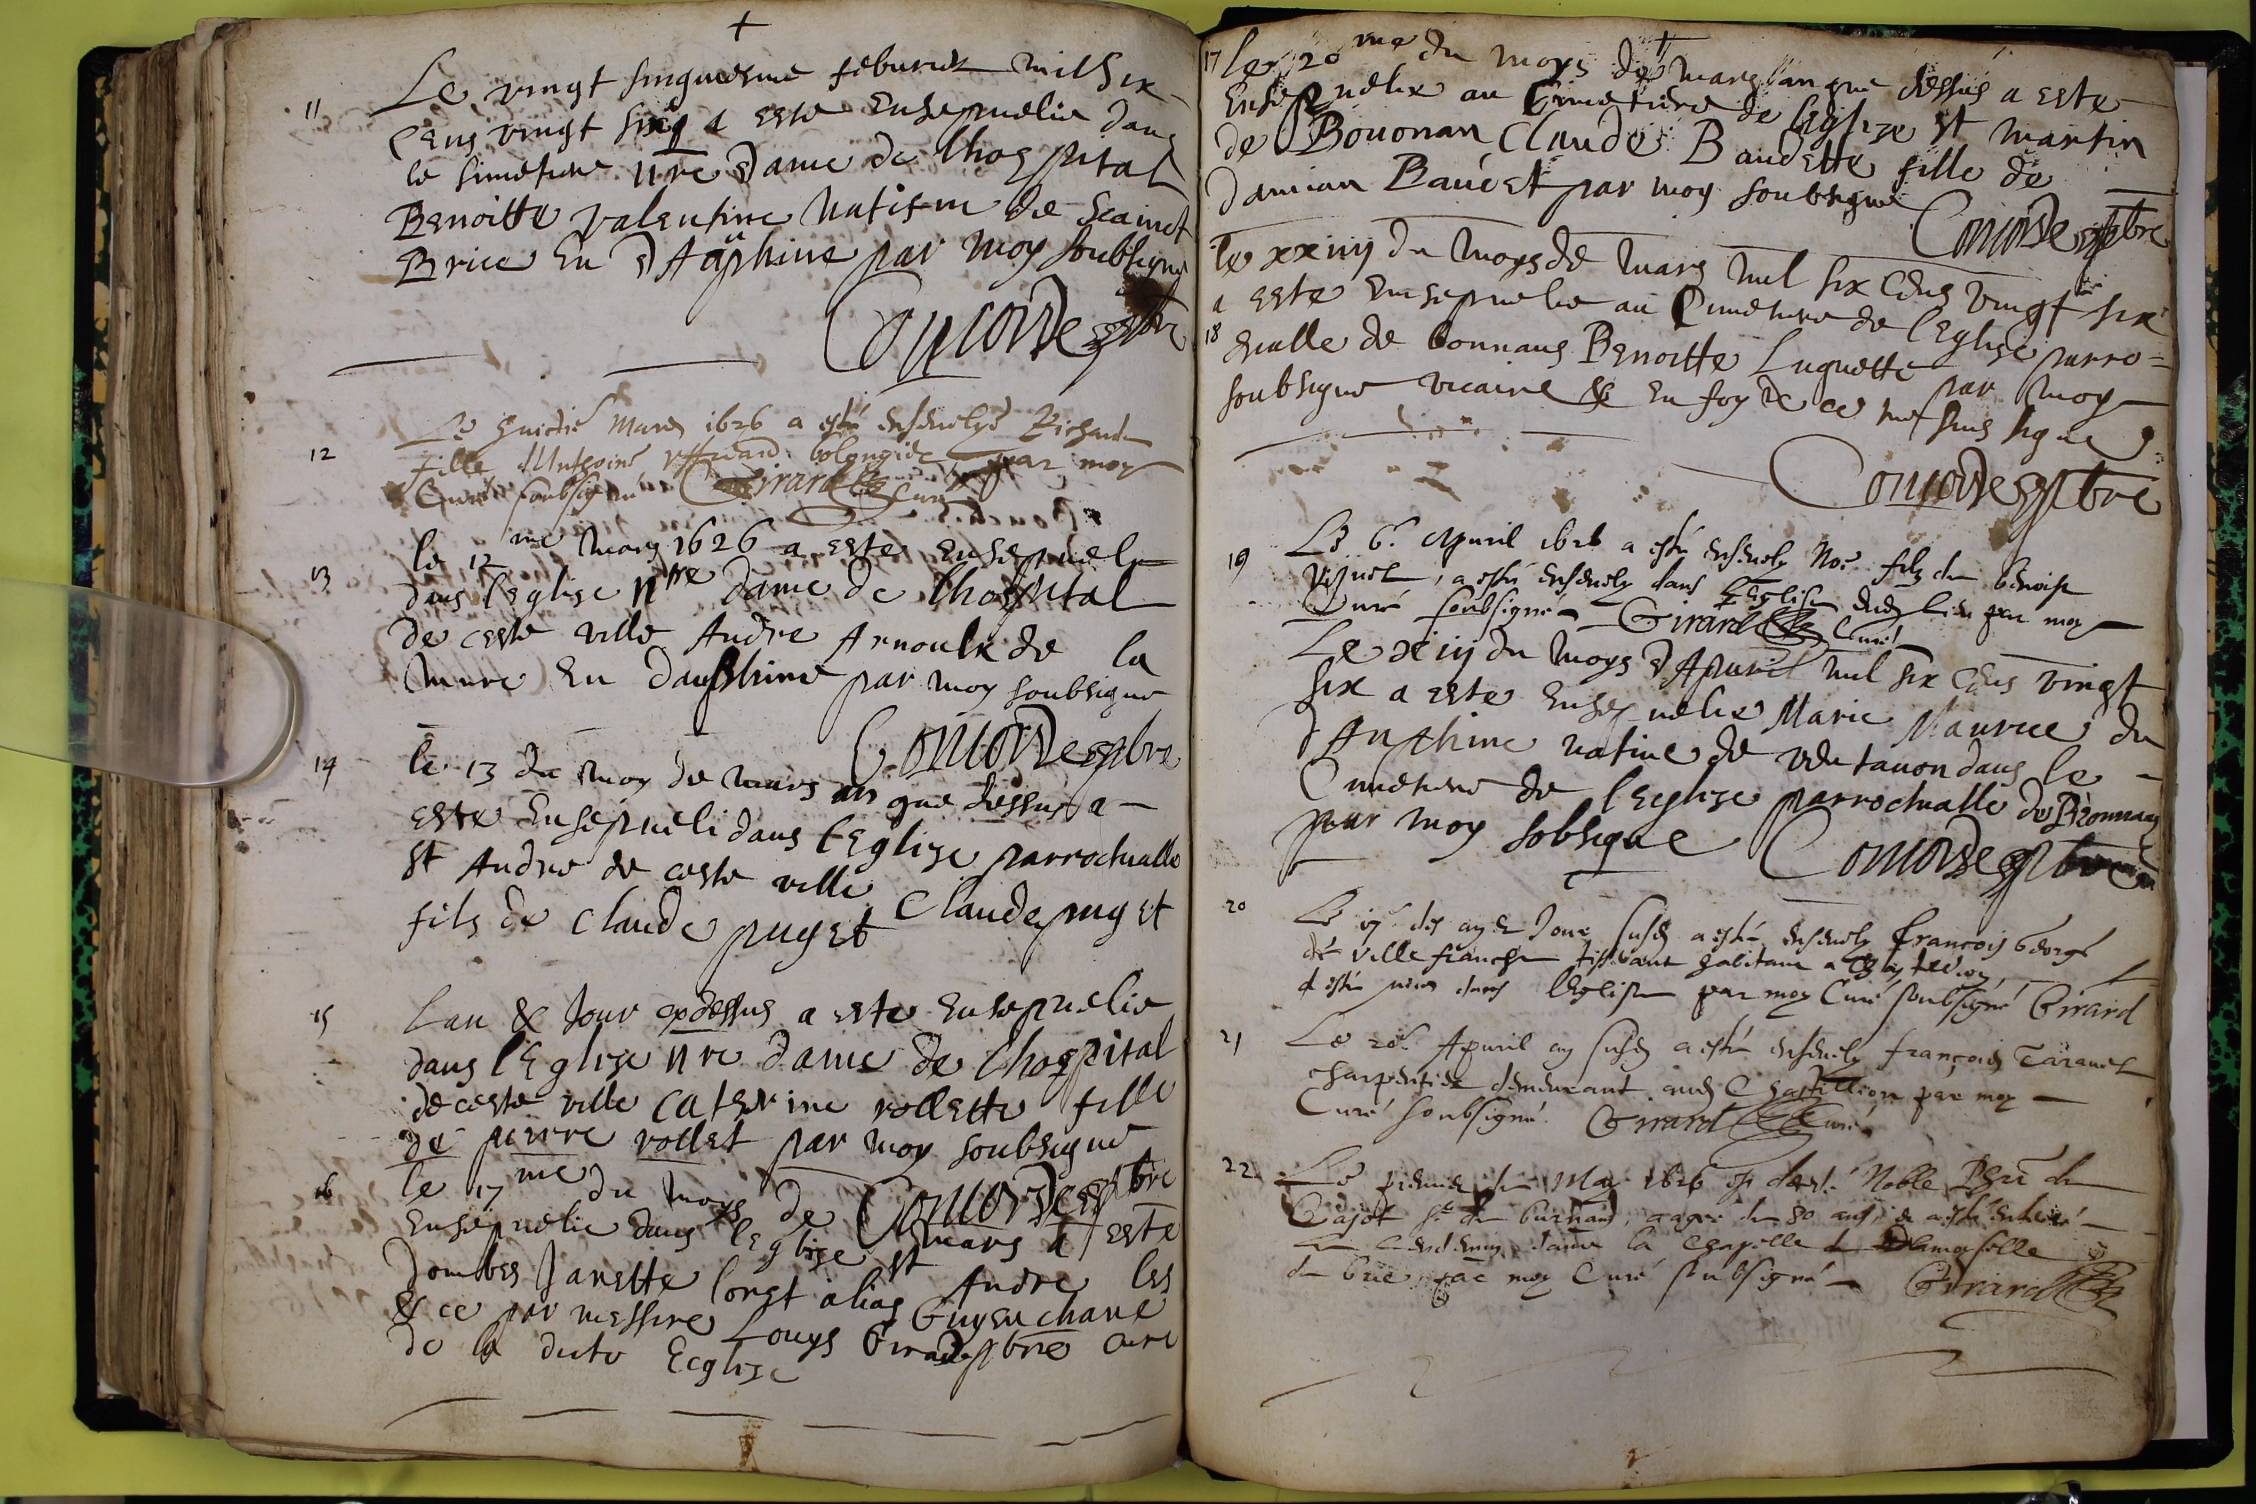 Le vingt sinquiesme feburier mil six
11
Cens vingt six a este Ensepuelie dans
le simetiere nre Dame de lhospital
Benoitte valentine natifve de Scainct
Brice En dAuphine par moy soubsigne
Concorde pbre
Le huictie Mars 1626 a esté ensevelye
12
fille dAnthoine par moy
Curé soubsigné Girard Curé
le 12 me Mars 1626 a este Ensepuely
13
dans lEglise ntre dame de lhospital
de ceste ville Andre Arnoulx de la
mure En dauphine par moy soubsigne
Concorde pbre
14
le 13 du moy de mars an que dessus a
este Ensepueli dans lEglize parrochialle
st Andre de ceste ville Claude puget
fils de Claude puget
15
Lan & Jour cydessus a este Ensepuelie
dans lEglize nre dame de lhospital
de ceste ville Caterine rollette fille
de pierre rollet par moy soubsigne
Concorde pbre
16
le 17 me du moys de mars a este
Ensepuelie dans lEglize st Andre les
dombes Janette longt alias Guyenchane
& ce par messire Louys Girard pbre cure
de la dicte Ecglize
17 le 20 me du moys de mars an que dessus a este
Ensepuelie au Cimetiere de lEglize st martin
de Bouonan Claude Baudette fille de
damian Baudet par moy soubsigne
Concorde pbre
le xxiiij du moys de mars mil six Cens vingt six
a este Ensepuelie au Cimetiere de lEglise parro=
18
chialle de bonnans Benoitte Luquette par moy
soubsigne vicaire & En foy de ce me suis signe
Concorde pbre
19
Le 6e Apuril 1626 a esté ensevely Noe filz de benoist
a esté ensevely dans lEglise dud lieu par moy
Curé soubsigné Girard Curé
Le xiij du moys dApuril mil six Cens vingt
six a este Ensepuelie Marie Maurice du
dAuphine natine de ventauon dans le
Cimetiere de lEcglize parrochialle de Bonnans
par moy sobsigne Concorde pbre
20
Le a esté ensevely francois George
de ville franche tisserant habitant a
dans lEglise par moy Curé soubsigné Girard
21
Le 26e Apuril an susd a esté ensevely françois
charpentier demeurant aud Chastillion par moy
Curé soubsigné Girard Curé
22
Le premier de May 1626 est decedé Noble
agé de 80 ans & a esté enterré
le lendemain dans la chapelle de damoyselle
de brie par moy Curé soubsigné Girard